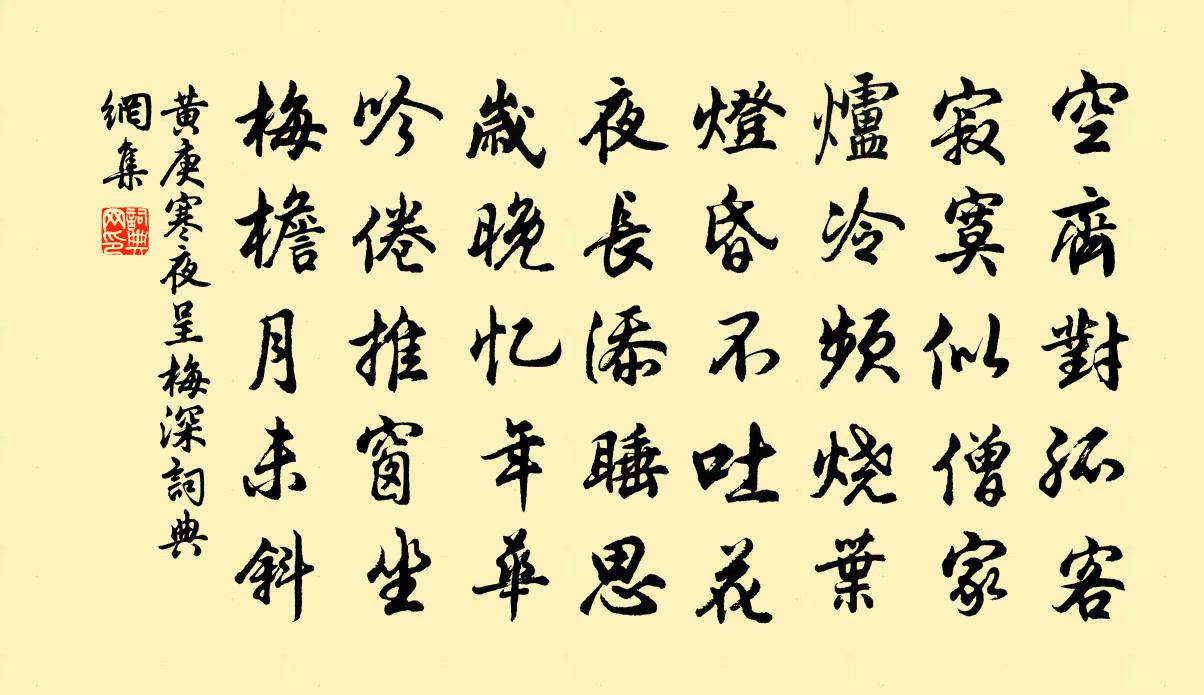 空齊對孤客
寂寞似僧家
爐冷頻燒葉
燈昏不吐花
夜長添睡思
歲晚忆年華
吟倦推窗坐
梅檐月未斜
黄庚寒夜呈梅深詞典
網集
詞典
网印